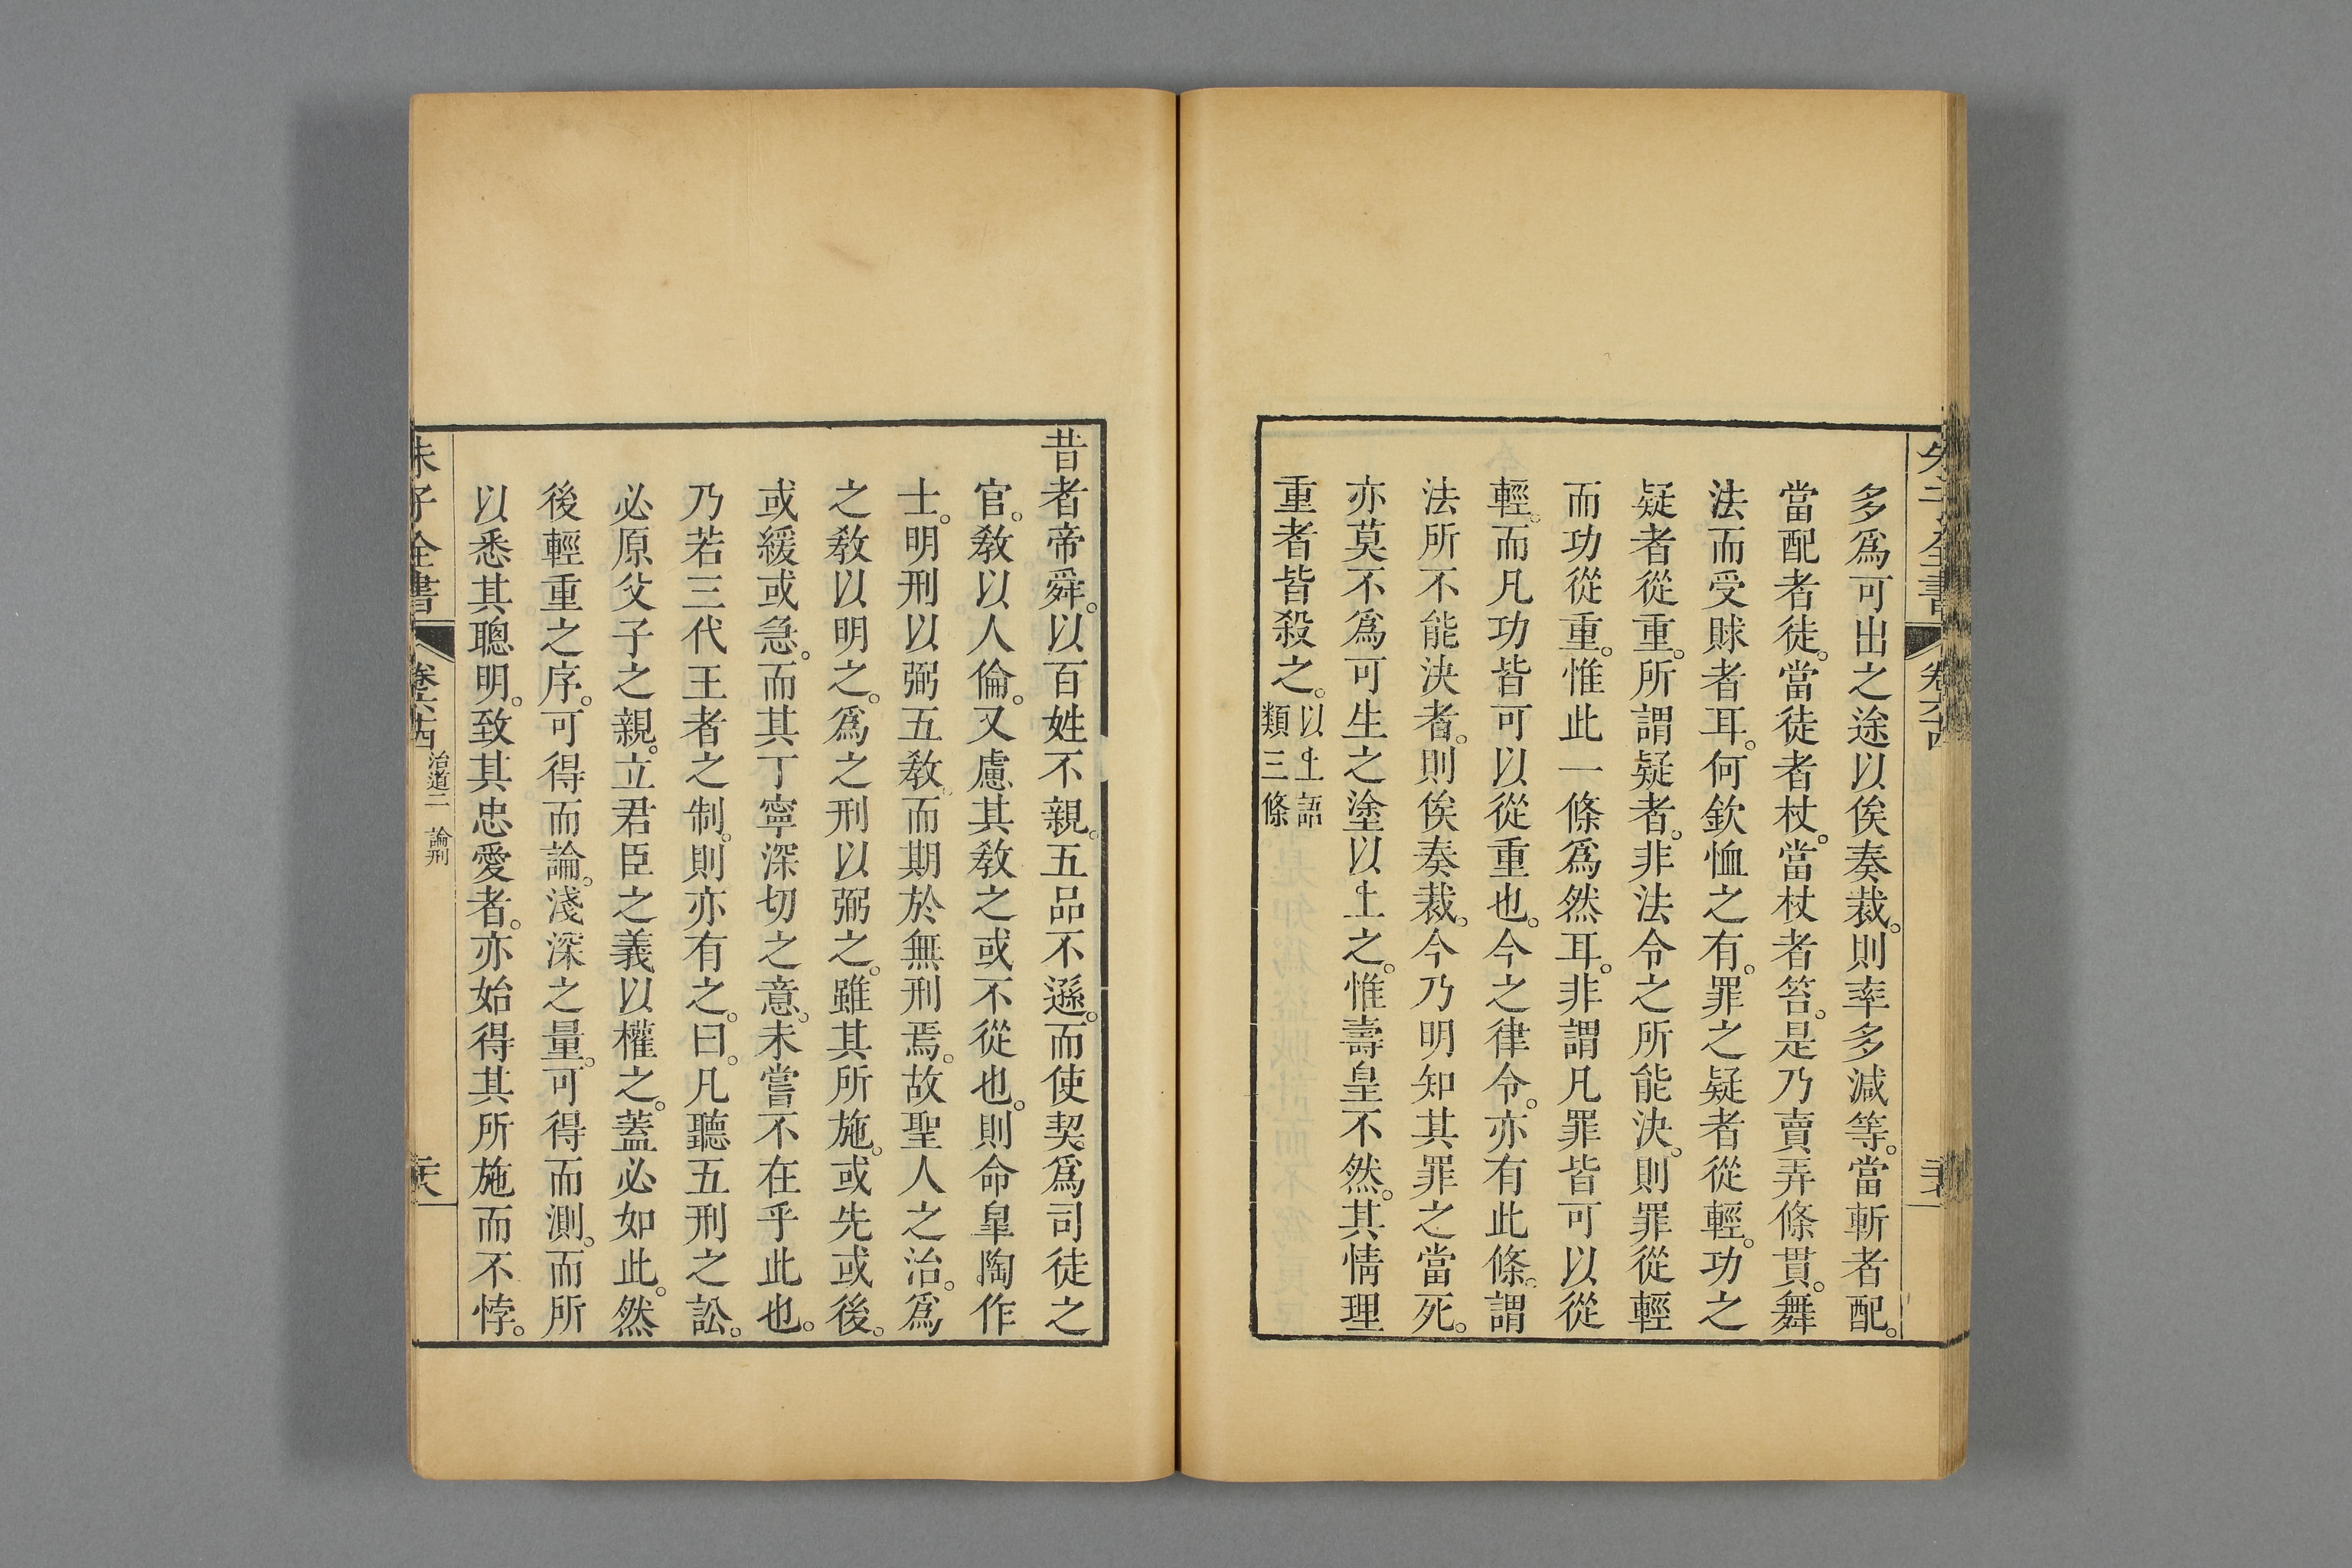 多爲可出之途以俟奏裁。則率多減等。當斬者配。
當配者徒。當徒者杖。當杖者笞。是乃賣弄條貫。舞
法而受賕者耳。何欽恤之有。罪之疑者從輕。功之
疑者從重。所謂疑者。非法令之所能決。則罪從輕
而功從重。惟此一條爲然耳。非謂凡罪皆可以從
輕。而凡功皆可以從重也。今之律令。亦有此條。謂
法所不能決者。則俟奏裁。今乃明知其罪之當死。
亦莫不爲可生之塗以上之。惟壽皇不然。其情理
重者皆殺之。以上語類三條
昔者帝舜。以百姓不親。五品不遜。而使契爲司徒之
官。敎以人倫。又慮其敎之或不從也。則命皐陶作
士。明刑以弼五敎。而期於無刑焉。故聖人之治。爲
之敎以明之。爲之刑以弼之。雖其所施。或先或後。
或緩或急。而其丁寧深切之意。未嘗不在乎此也。
乃若三代王者之制。則亦有之。曰。凡聽五刑之訟。
必原父子之親。立君臣之義以權之。蓋必如此。然
後輕重之序。可得而論。淺深之量。可得而測。而所
以悉其聰明。致其忠愛者。亦始得其所施而不悖。
朱子全書
卷六十四
治道二 論刑